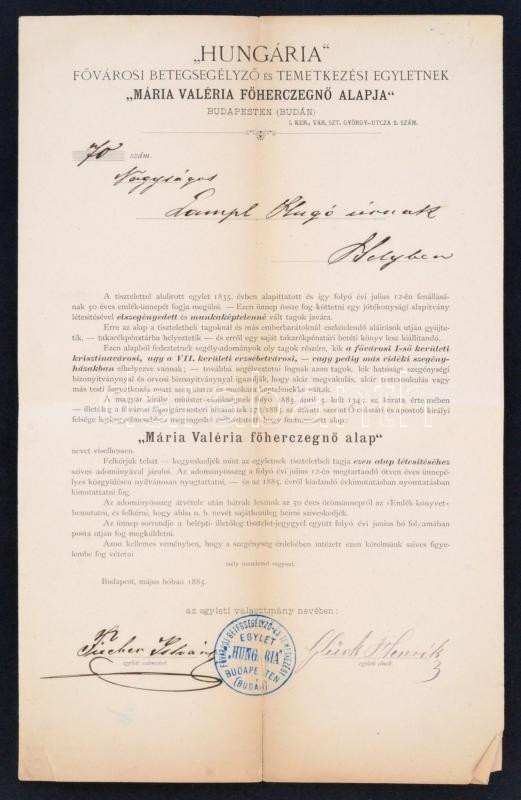 „HUNGÁRIA“
FŐVÁROSI BETEGSEGÉLYZŐ ÉS TEMETKEZÉSI EGYLETNEK
„MÁRIA VALÉRIA FŐHERCZEGNŐ ALAPJA“
BUDAPESTEN (BUDÁN)
I. KER., VÁR, SZT. GYÖRGY-UTCZA 2. SZÁM.
70 szám.
Nagyságos
Lampl Hugó úrnak
Helyben
A tisztelettel alulirott egylet 1835. évben alapittatott és igy folyó évi julius 12-én fenállásá-
nak 50 éves emlék-ünnepét fogja megülni. — Ezen ünnep össze fog köttetni egy jótékonysági alapitvány
létesitésével elszegényedett és munkaképtelenné vált tagok javára.
Erre az alap a tiszteletbeli tagoknál és más emberbarátoknál eszközlendő aláirások utján gyüjte-
tik, — takarékpénztárba helyeztetik — és erről egy saját takarékpénztári betéti könyv lesz kiállitandó.
Ezen alapból fedeztetnek segély-adományok oly tagok részére, kik a fővárosi I-ső kerületi
krisztinavárosi, ugy a VII. kerületi erzsébetvárosi, — vagy pedig más vidéki szegény-
házakban elhelyezve vannak; — továbbá segélyeztetni fognak azon tagok, kik hatósági szegénységi
bizonyitványnyal és orvosi bizonyitványnyal igazolják, hogy akár megvakulás, akár megcsonkulás vagy
más testi fogyatkozás miatt szolgálatra és munkára képtelenekké váltak.
A magyar királyi
felsége legkegyelmesebben megengedni méltóztatott, hogy fentemlitett alap:
„Mária Valéria főherczegnő alap“
nevet viselhessen.
Felkérjük tehát — kegyeskedjék mint az egyletnek tiszteletbeli tagja ezen alap létesitéséhez
szives adományával járulni. Az adományösszeg a folyó évi julius 12-én megtartandó ötven éves ünnepé-
lyes közgyülésen nyilvánosan nyugtattatni, — és az 1885. évről kiadandó évkimutatásban nyomtatásban
kimutattatni fog.
Az adományösszeg átvétele után bátrak leszünk az 50 éves örömünnepről az »Emlék-könyvet«
bemutatni, és felkérni, hogy abba n. b. nevét sajátkezüleg beirni sziveskedjék.
Az ünnep sorrendje a belépti- illetőleg tisztelet-jegygyel együtt folyó évi junius hó folyamában
posta utján fog megküldetni.
Azon kellemes veményben, hogy a szegénység érdekében intézett ezen kérelmünk szives figye-
lembe fog vétetni
mély tisztelettel vagyunk
Budapest, május hóban 1885.
az egyleti választmány nevében:
Pucher István
egyleti számvevő.
FŐVÁROSI BETEGSEGÉLYZŐ-ÉS TEMETKEZÉSI
EGYLET
„HUNGÁRIA“
BUDAPESTEN
(BUDÁN)
Glück Henrik
egyleti elnök.